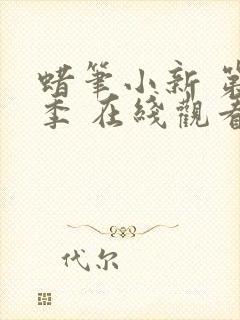 蜡筆小新 第
季 在綫觀看
代尔